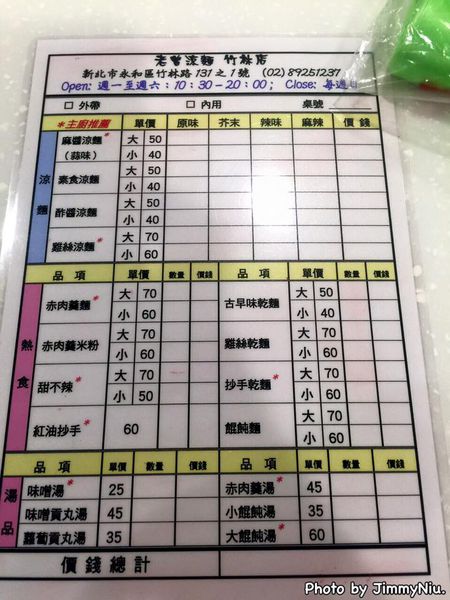 老曾涼麵 竹林店
新北市永和區竹林路 131 之 1 號 (02) 89251237
Open: 週一至週六：10:30-20:00; Close: 每週日
□ 外帶 □ 內用 桌號
*主廚推薦 單價 原味 芥末 辣味 麻辣 價錢
涼麵
麻醬涼麵* (蒜味) 大 50
小 40
素食涼麵 大 50
小 40
酢醬涼麵 大 50
小 40
雞絲涼麵* 大 70
小 60
品項 單價 數量 價錢 品項 單價 數量 價錢
熱食
赤肉羹麵* 大 70 古早味乾麵 大 50
小 60 小 40
赤肉羹米粉 大 70 雞絲乾麵 大 70
小 60 小 60
甜不辣* 大 70 抄手乾麵* 大 70
小 50 小 60
紅油抄手* 60 餛飩麵 大 70
小 60
品項 單價 數量 價錢 品項 單價 數量 價錢
湯品
味噌湯* 25 赤肉羹湯* 45
味噌貢丸湯 45 小餛飩湯 35
蘿蔔貢丸湯 35 大餛飩湯* 60
價錢總計
Photo by JimmyNiu.